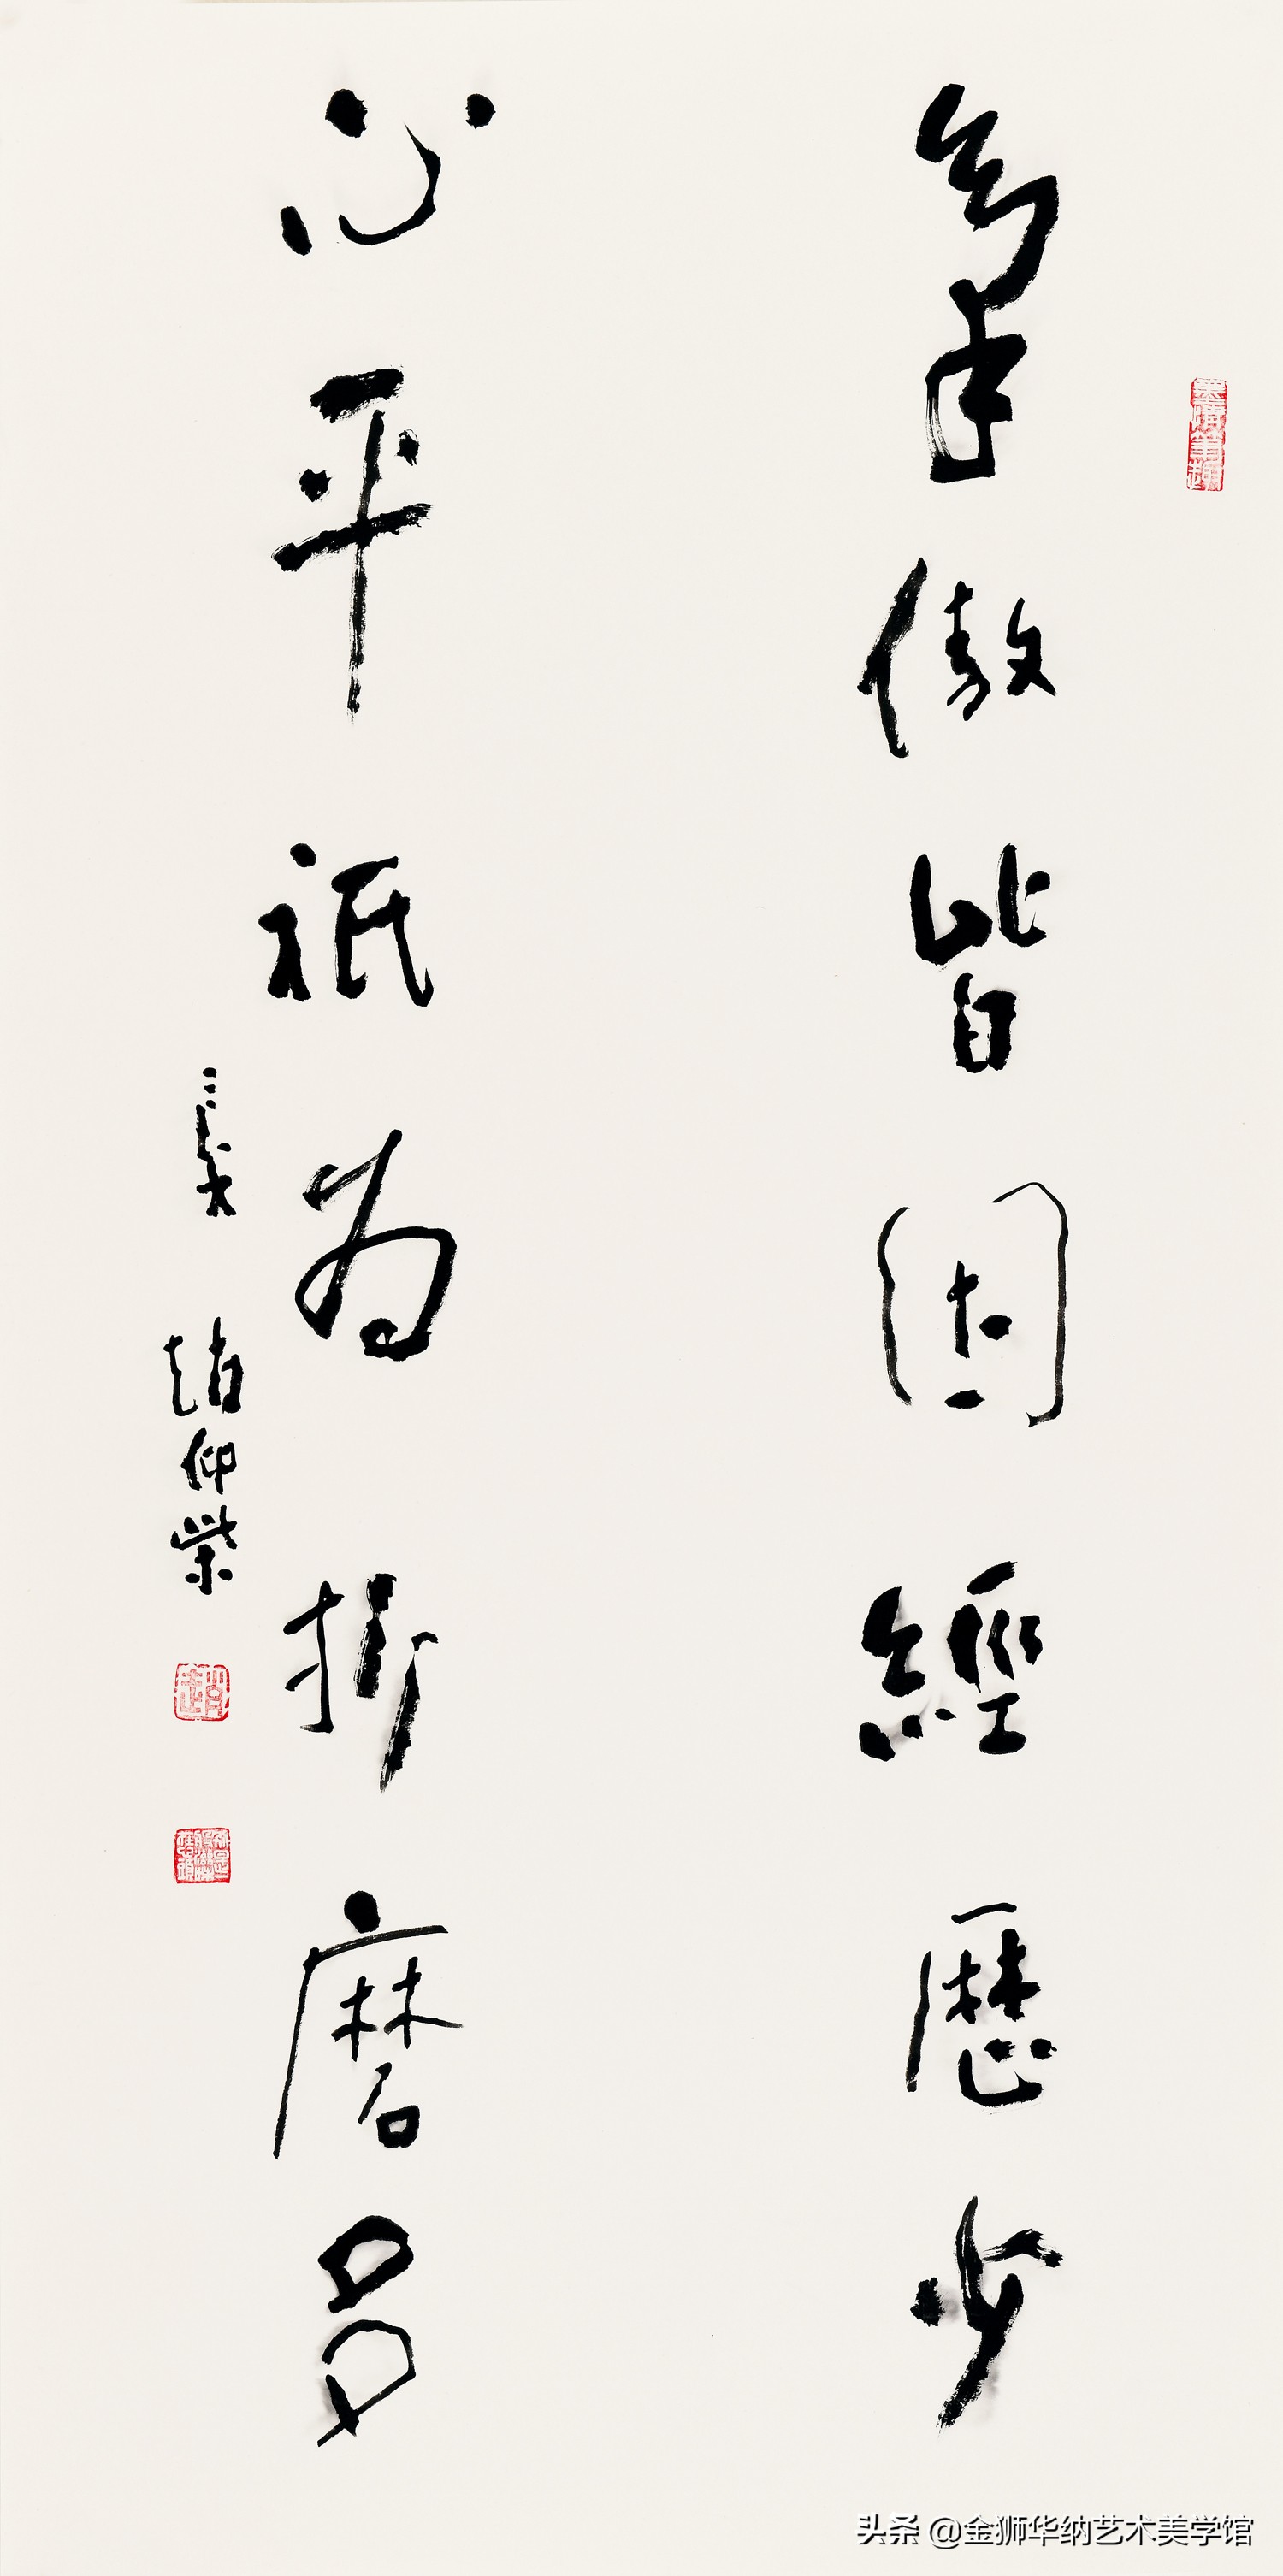 氣傲皆因經歷少
心平祇為折磨多
趙仰
趙
头条 @金狮华纳艺术美学馆